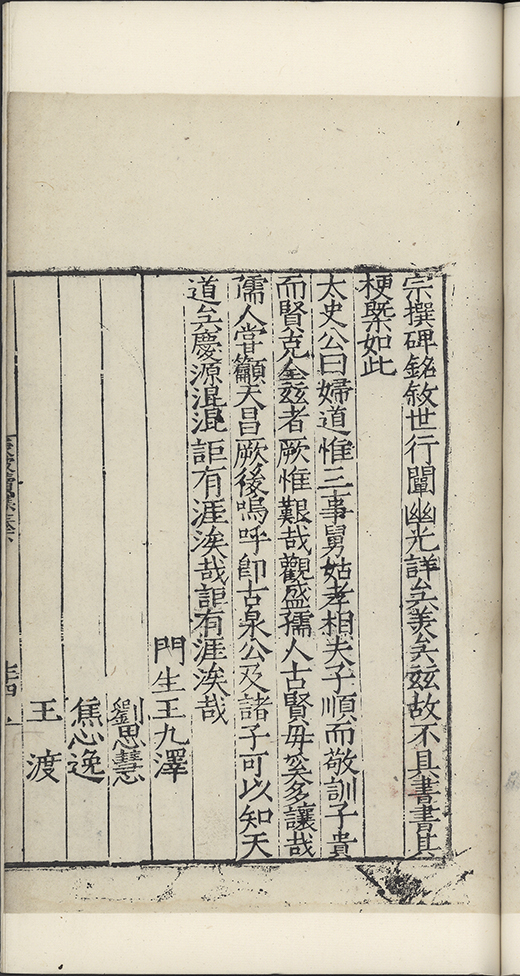 宗撰碑銘敘世行闡幽光詳矣美矣茲故不具書書其
梗槩如此
太史公曰婦道惟三事舅姑孝相夫子順而敬訓子貴
而賢克全茲者厥惟艱哉觀盛孺人古賢母奚多讓哉
孺人嘗籲天昌厥後嗚呼即古泉公及諸子可以知天
道矣慶源混混詎有涯涘哉詎有涯涘哉
門生王九澤
劉思慧
焦心逸
王渡